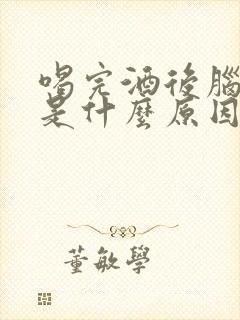 喝完酒後腦
是什麼原因
董敏學